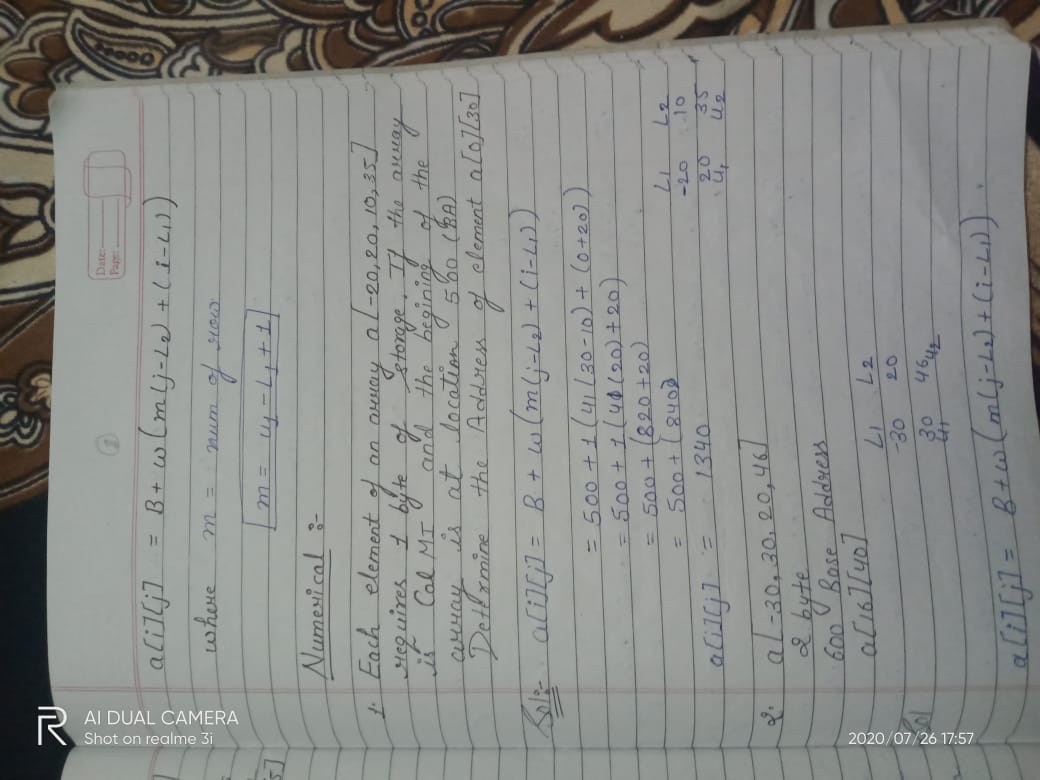 Date:
Page:
a[i][j] = B + w(m(j-L2) + (i-L1))
where m = num of row
m = u1 - L1 + 1
Numerical :-
1. Each element of an array a[-20,20,10,35]
requires 1 byte of storage. If the array
is Col MJ and the begining of the
array is at location 500 (BA)
Determine the Address of element a[0][30]
Sol:- a[i][j] = B + w(m(j-L2) + (i-L1))
= 500 + 1(41(30-10) + (0+20))
= 500 + 1(41(20) + 20)
= 500 + (820 + 20)
= 500 + (840)
a[i][j] = 1340
L1 L2
-20 10
20 35
u1 u2
2. a[-30,30,20,46]
2 byte
600 Base Address
a[16][40]
L1 L2
-30 20
30 46
u1 u2
Sol
a[i][j] = B + w(m(j-L2) + (i-L1))
AI DUAL CAMERA
Shot on realme 3i
2020/07/26 17:57